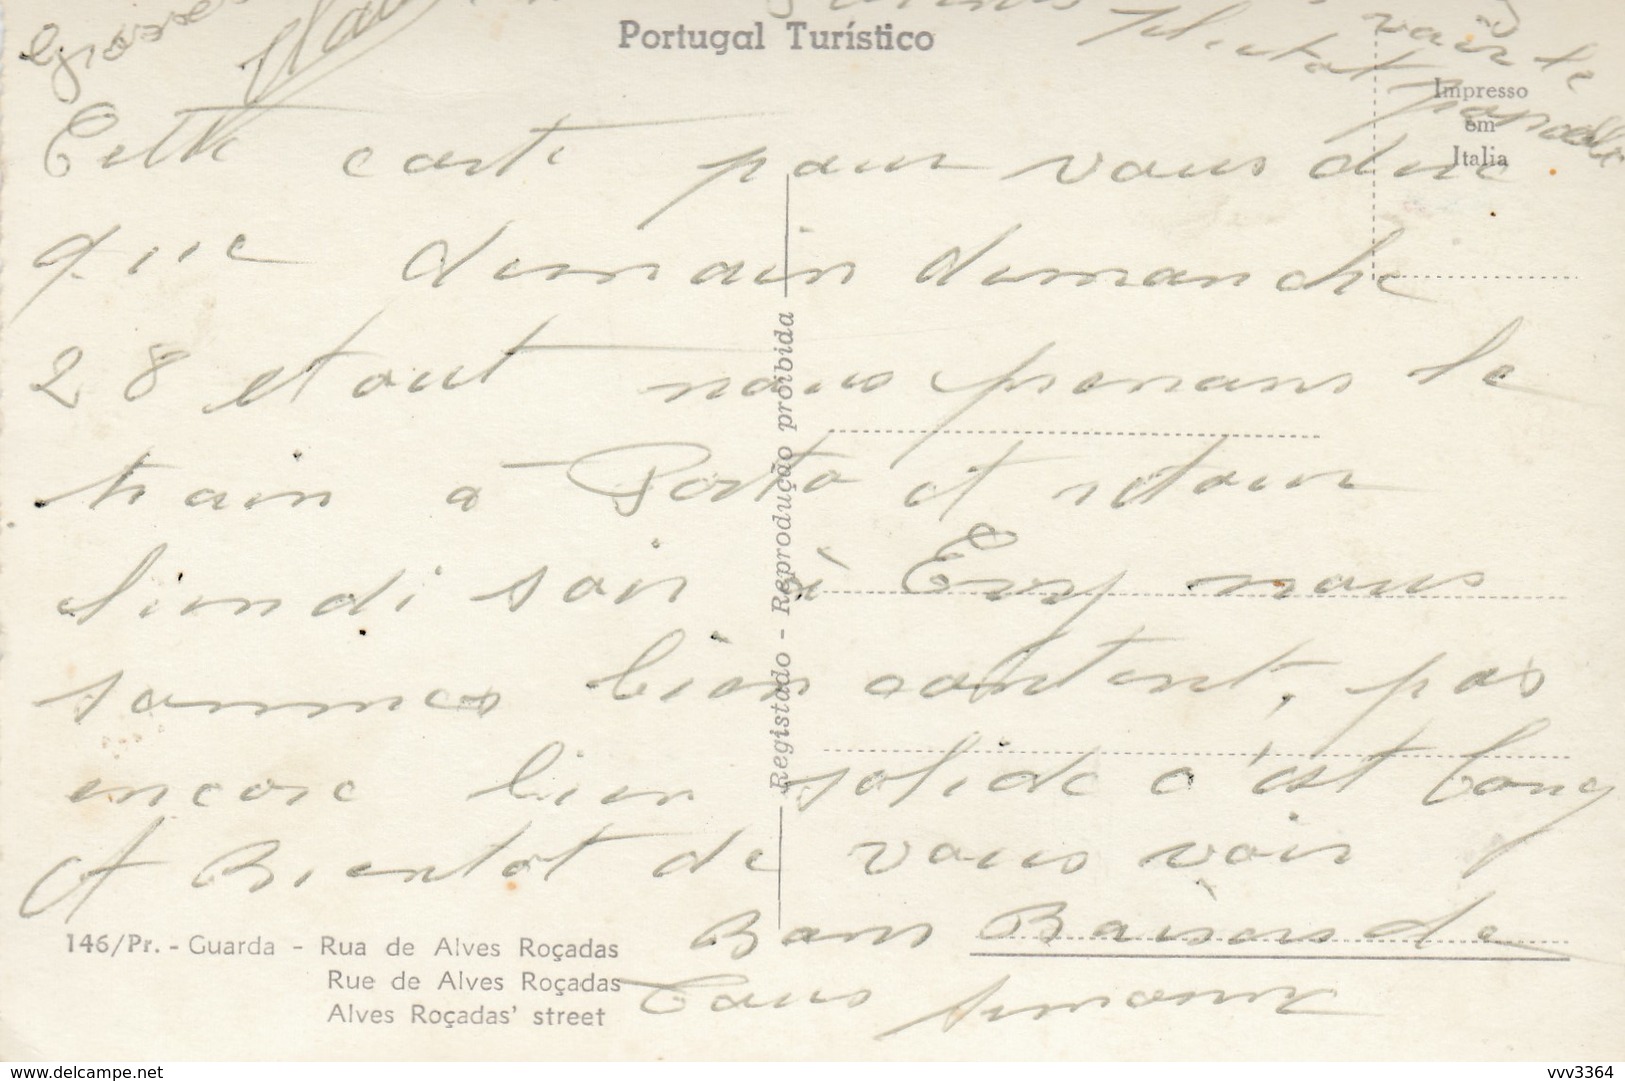 Grosses
Portugal Turístico
Impresso
em
Italia
Cette carte pour vous dire
que demain dimanche
28 et out nous prenons le
train a Porto et retour
lundi soir à Evry nous
sommes bien content, pas
encore bien solide c'est long
A Bientot de vous voir
Bons Baisers de
Tous Simonne
Registado - Reprodução proibida
146/Pr. - Guarda - Rua de Alves Roçadas
Rue de Alves Roçadas
Alves Roçadas' street
delcampe.net
vvv3364